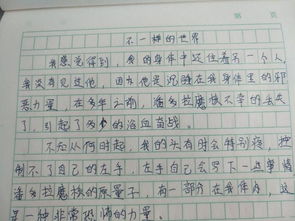 不一样的世界
我感觉得到，我的身体中还住着另一个人，
我没有见过他，因为他是沉睡在我身体里的邪
恶力量，在多年之前，潘多拉魔族不幸的丢失
了，引起了多的浴血奋战。
不知从何时起，我的头有时会特别疼，控
制不了自己的左手，左手自己会写下一些事情
潘多拉魔族的原量子，有一部分在我体内，这
是一种非常恐怖的力量。